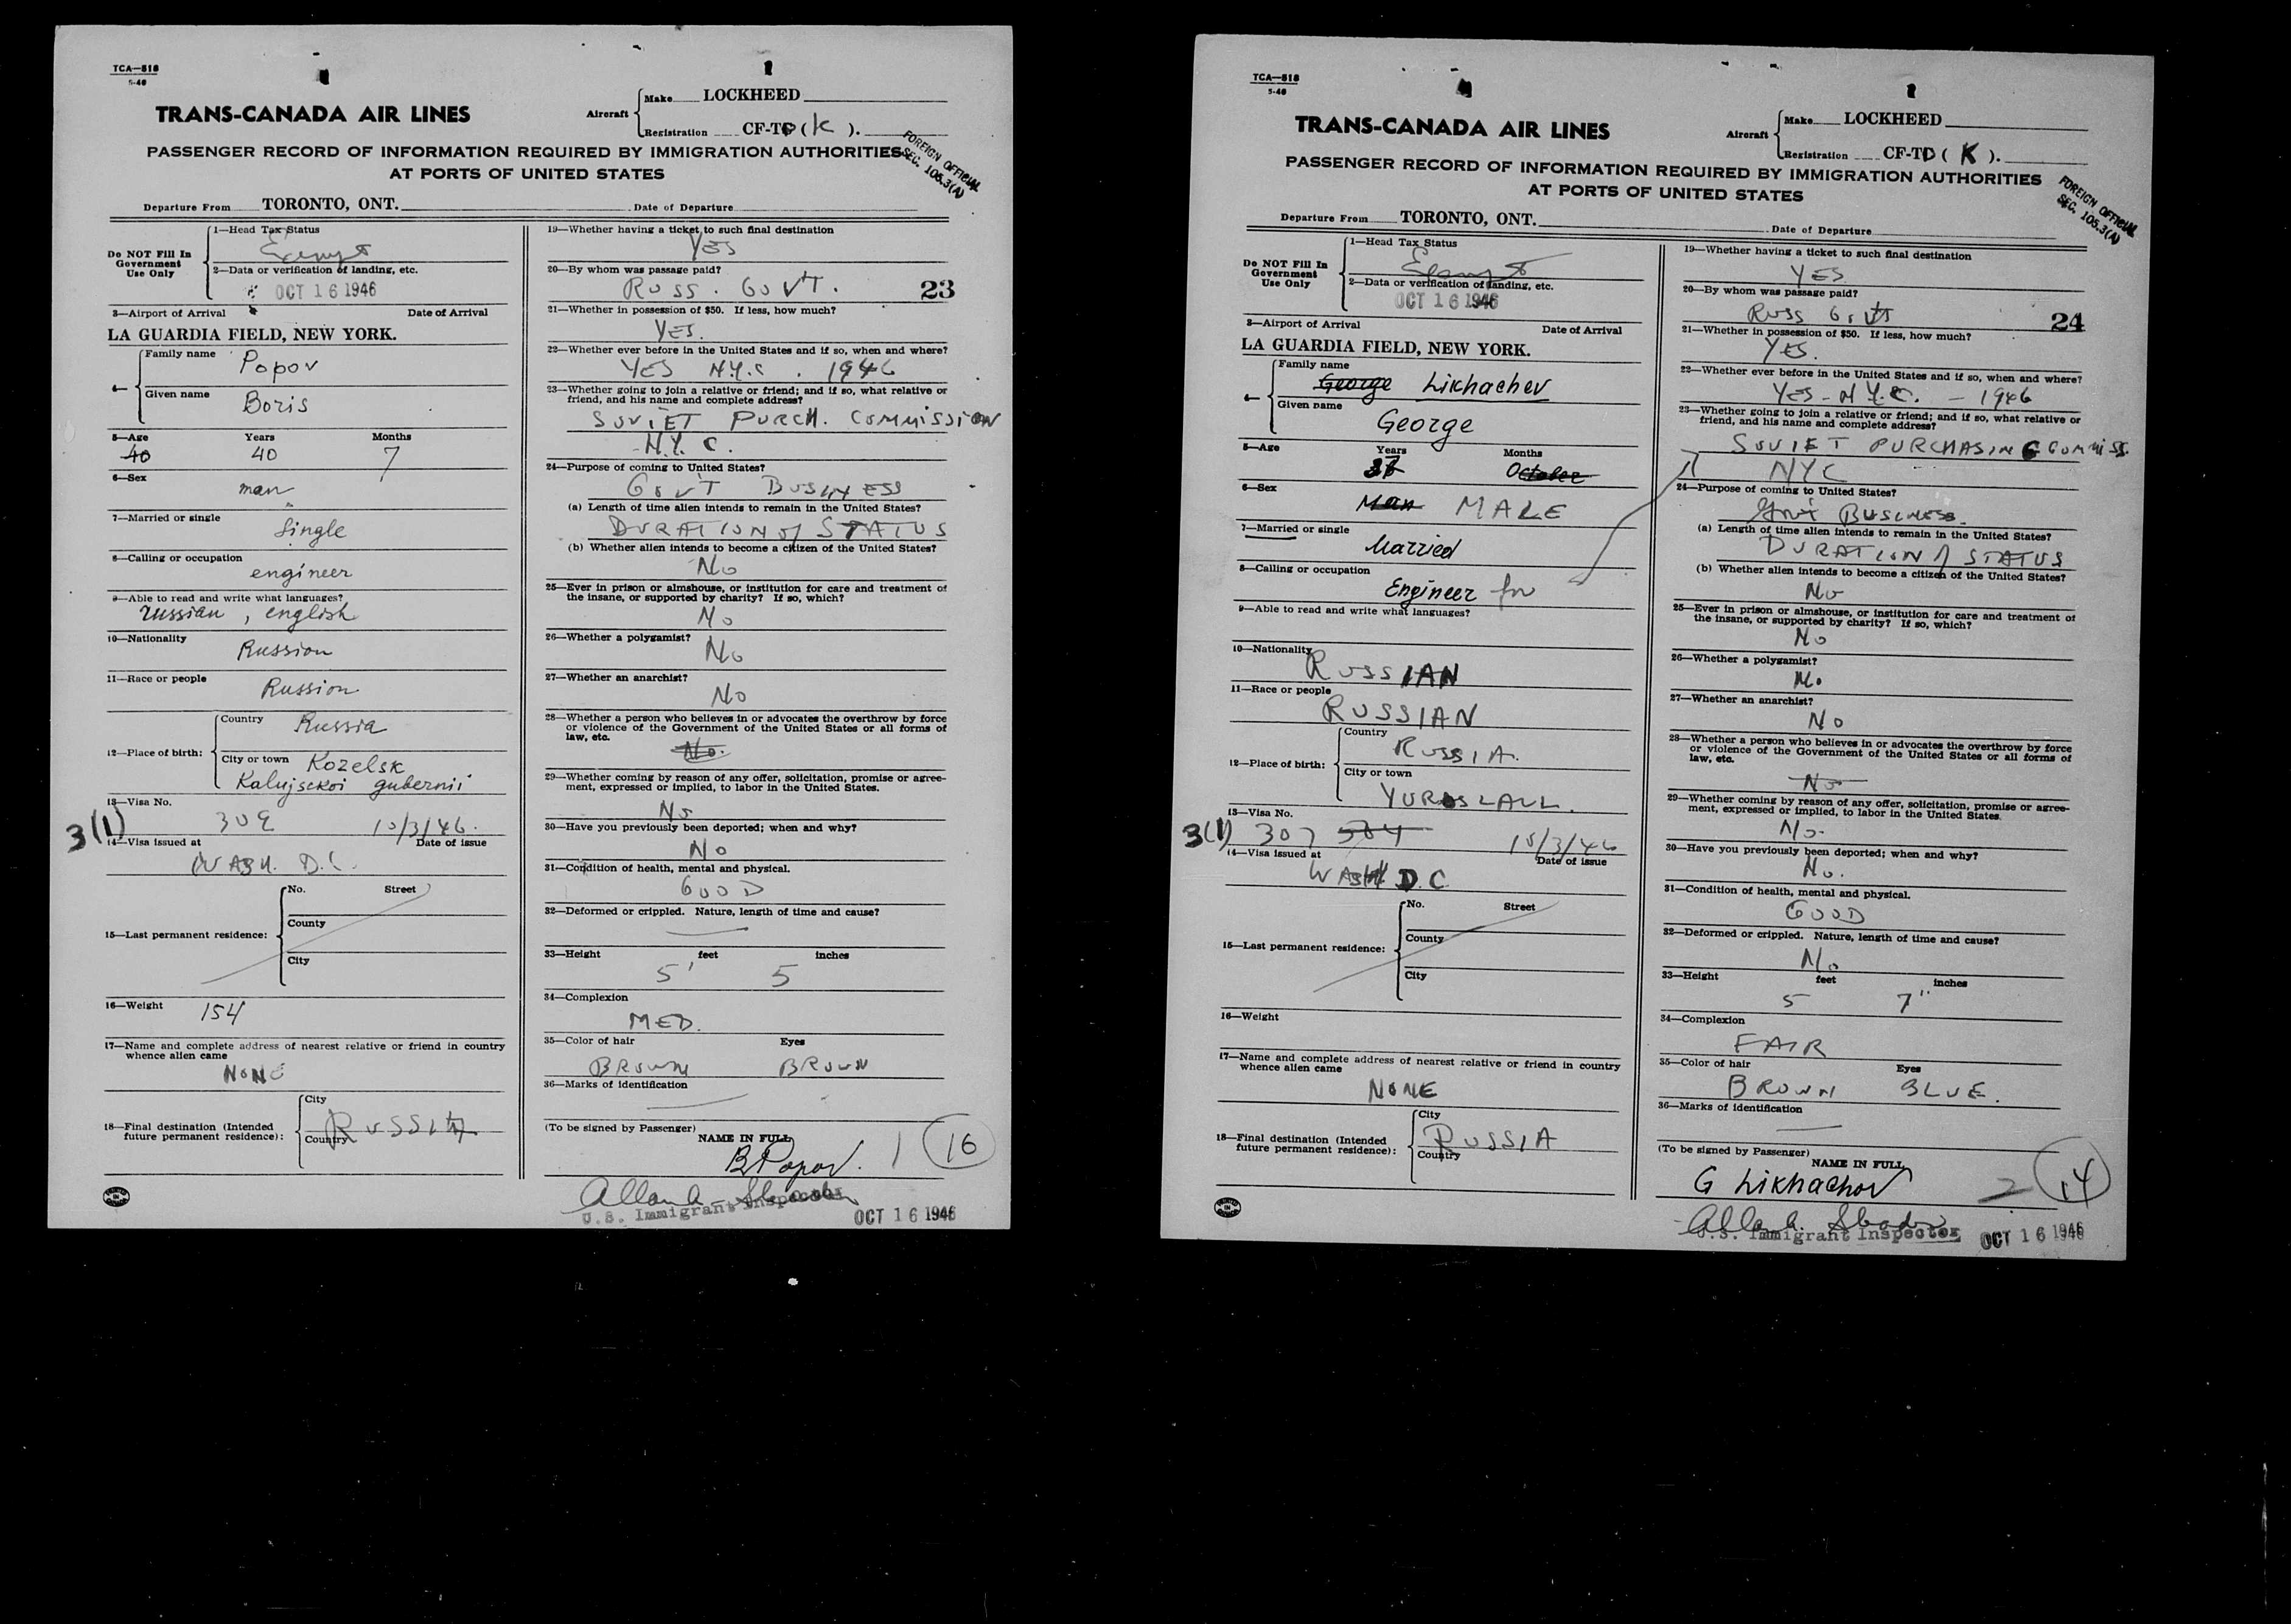 TCA—518
5-40
TRANS-CANADA AIR LINES
Aircraft
Make LOCKHEED
Registration CF-TC (K).
PASSENGER RECORD OF INFORMATION REQUIRED BY IMMIGRATION AUTHORITIES
AT PORTS OF UNITED STATES
FOREIGN OFFICIAL
SEC. 105.3(A)
Departure From TORONTO, ONT. Date of Departure
Do NOT Fill In
Government
Use Only
1—Head Tax Status
Exempt
2—Data or verification of landing, etc.
OCT 16 1946
3—Airport of Arrival Date of Arrival
LA GUARDIA FIELD, NEW YORK.
4—
Family name Popov
Given name Boris
5—Age Years Months
40 40 7
6—Sex man
7—Married or single
Single
8—Calling or occupation
engineer
9—Able to read and write what languages?
russian, english
10—Nationality
Russion
11—Race or people
Russion
12—Place of birth:
Country Russia
City or town Kozelsk
Kalujsckoi gubernii
13—Visa No.
3(1) 309 10/3/46.
14—Visa issued at Date of issue
WASH. D.C.
15—Last permanent residence:
No. Street
County
City
16—Weight 154
17—Name and complete address of nearest relative or friend in country
whence alien came
NONE
18—Final destination (Intended
future permanent residence):
City
Country RUSSIA
19—Whether having a ticket to such final destination
YES
20—By whom was passage paid?
RUSS. GOVT. 23
21—Whether in possession of $50. If less, how much?
YES.
22—Whether ever before in the United States and if so, when and where?
YES N.Y.C. 1946
23—Whether going to join a relative or friend; and if so, what relative or
friend, and his name and complete address?
SOVIET PURCH. COMMISSION
N.Y.C.
24—Purpose of coming to United States?
GOVT BUSINESS
(a) Length of time alien intends to remain in the United States?
DURATION of STATUS
(b) Whether alien intends to become a citizen of the United States?
No
25—Ever in prison or almshouse, or institution for care and treatment of
the insane, or supported by charity? If so, which?
No
26—Whether a polygamist?
No
27—Whether an anarchist?
No
28—Whether a person who believes in or advocates the overthrow by force
or violence of the Government of the United States or all forms of
law, etc.
No.
29—Whether coming by reason of any offer, solicitation, promise or agree-
ment, expressed or implied, to labor in the United States.
No
30—Have you previously been deported; when and why?
No
31—Condition of health, mental and physical.
GOOD
32—Deformed or crippled. Nature, length of time and cause?
33—Height feet inches
5' 5
34—Complexion
MED.
35—Color of hair Eyes
BROWN BROWN
36—Marks of identification
(To be signed by Passenger)
NAME IN FULL
B Popov. 1 16
U.S. Immigrant Inspector
OCT 16 1946
TCA—518
5-40
TRANS-CANADA AIR LINES
Aircraft
Make LOCKHEED
Registration CF-TC (K).
PASSENGER RECORD OF INFORMATION REQUIRED BY IMMIGRATION AUTHORITIES
AT PORTS OF UNITED STATES
FOREIGN OFFICIAL
SEC. 105.3(A)
Departure From TORONTO, ONT. Date of Departure
Do NOT Fill In
Government
Use Only
1—Head Tax Status
Exempt
2—Data or verification of landing, etc.
OCT 16 1946
3—Airport of Arrival Date of Arrival
LA GUARDIA FIELD, NEW YORK.
4—
Family name
George Likhachev
Given name
George
5—Age Years Months
October
6—Sex
Man MALE
7—Married or single
Married
8—Calling or occupation
Engineer for
9—Able to read and write what languages?
10—Nationality
RUSSIAN
11—Race or people
RUSSIAN
12—Place of birth:
Country
RUSSIA.
City or town
YUROSLAVL.
13—Visa No.
3(1) 307 10/3/46
14—Visa issued at Date of issue
WASH D.C
15—Last permanent residence:
No. Street
County
City
16—Weight
17—Name and complete address of nearest relative or friend in country
whence alien came
NONE
18—Final destination (Intended
future permanent residence):
City
RUSSIA
Country
19—Whether having a ticket to such final destination
YES
20—By whom was passage paid?
RUSS GOVT 24
21—Whether in possession of $50. If less, how much?
YES.
22—Whether ever before in the United States and if so, when and where?
YES - N.Y.C. - 1946
23—Whether going to join a relative or friend; and if so, what relative or
friend, and his name and complete address?
SOVIET PURCHASING COMMISS.
NYC
24—Purpose of coming to United States?
Govt BUSINESS.
(a) Length of time alien intends to remain in the United States?
DURATION of STATUS
(b) Whether alien intends to become a citizen of the United States?
No
25—Ever in prison or almshouse, or institution for care and treatment of
the insane, or supported by charity? If so, which?
No
26—Whether a polygamist?
No
27—Whether an anarchist?
No
28—Whether a person who believes in or advocates the overthrow by force
or violence of the Government of the United States or all forms of
law, etc.
No
29—Whether coming by reason of any offer, solicitation, promise or agree-
ment, expressed or implied, to labor in the United States.
No.
30—Have you previously been deported; when and why?
No.
31—Condition of health, mental and physical.
GOOD
32—Deformed or crippled. Nature, length of time and cause?
No
33—Height feet inches
5 7"
34—Complexion
FAIR
35—Color of hair Eyes
BROWN BLUE.
36—Marks of identification
(To be signed by Passenger)
NAME IN FULL
G Likhachov 2 14
U.S. Immigrant Inspector
OCT 16 1946